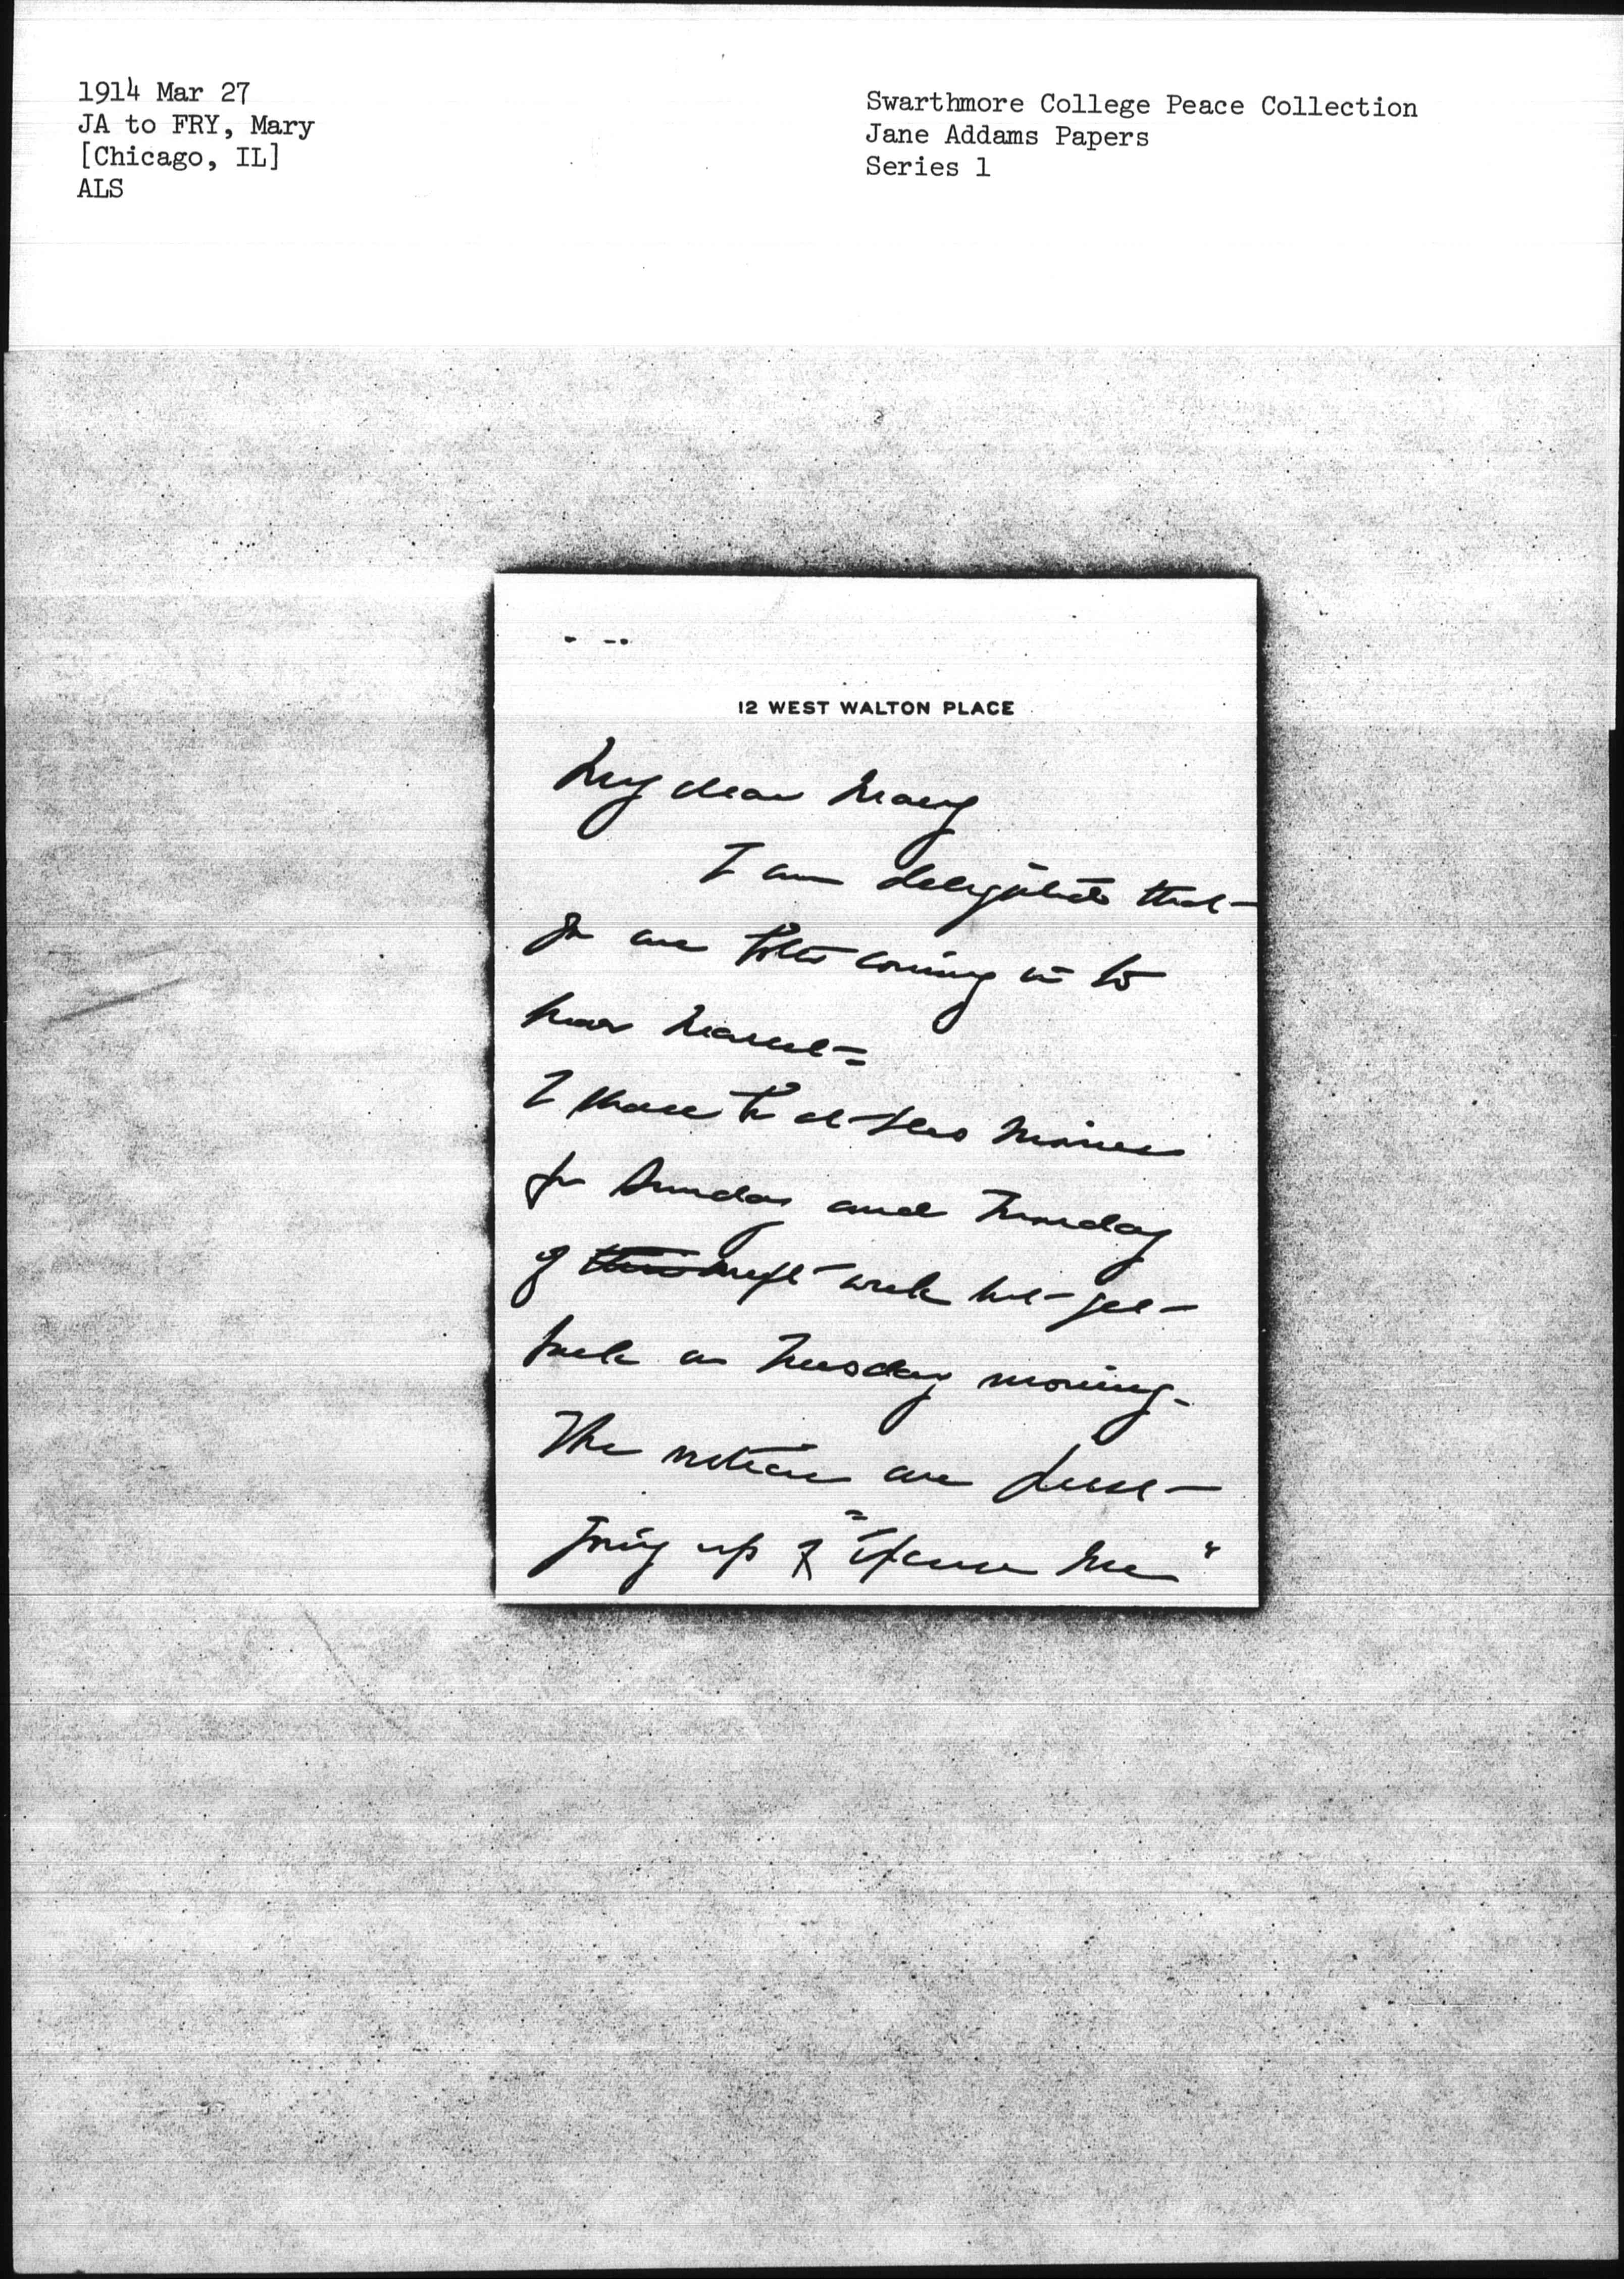 1914 Mar 27
JA to FRY, Mary
[Chicago, IL]
ALS
Swarthmore College Peace Collection
Jane Addams Papers
Series 1
12 WEST WALTON PLACE
My dear Mary
I am delighted that
you are both coming in to
hear Marcet =
I have to be at Des Moines
for Sunday and Monday
of ~~this~~ next week but get
back on Tuesday morning -
The notices are just
going up of "